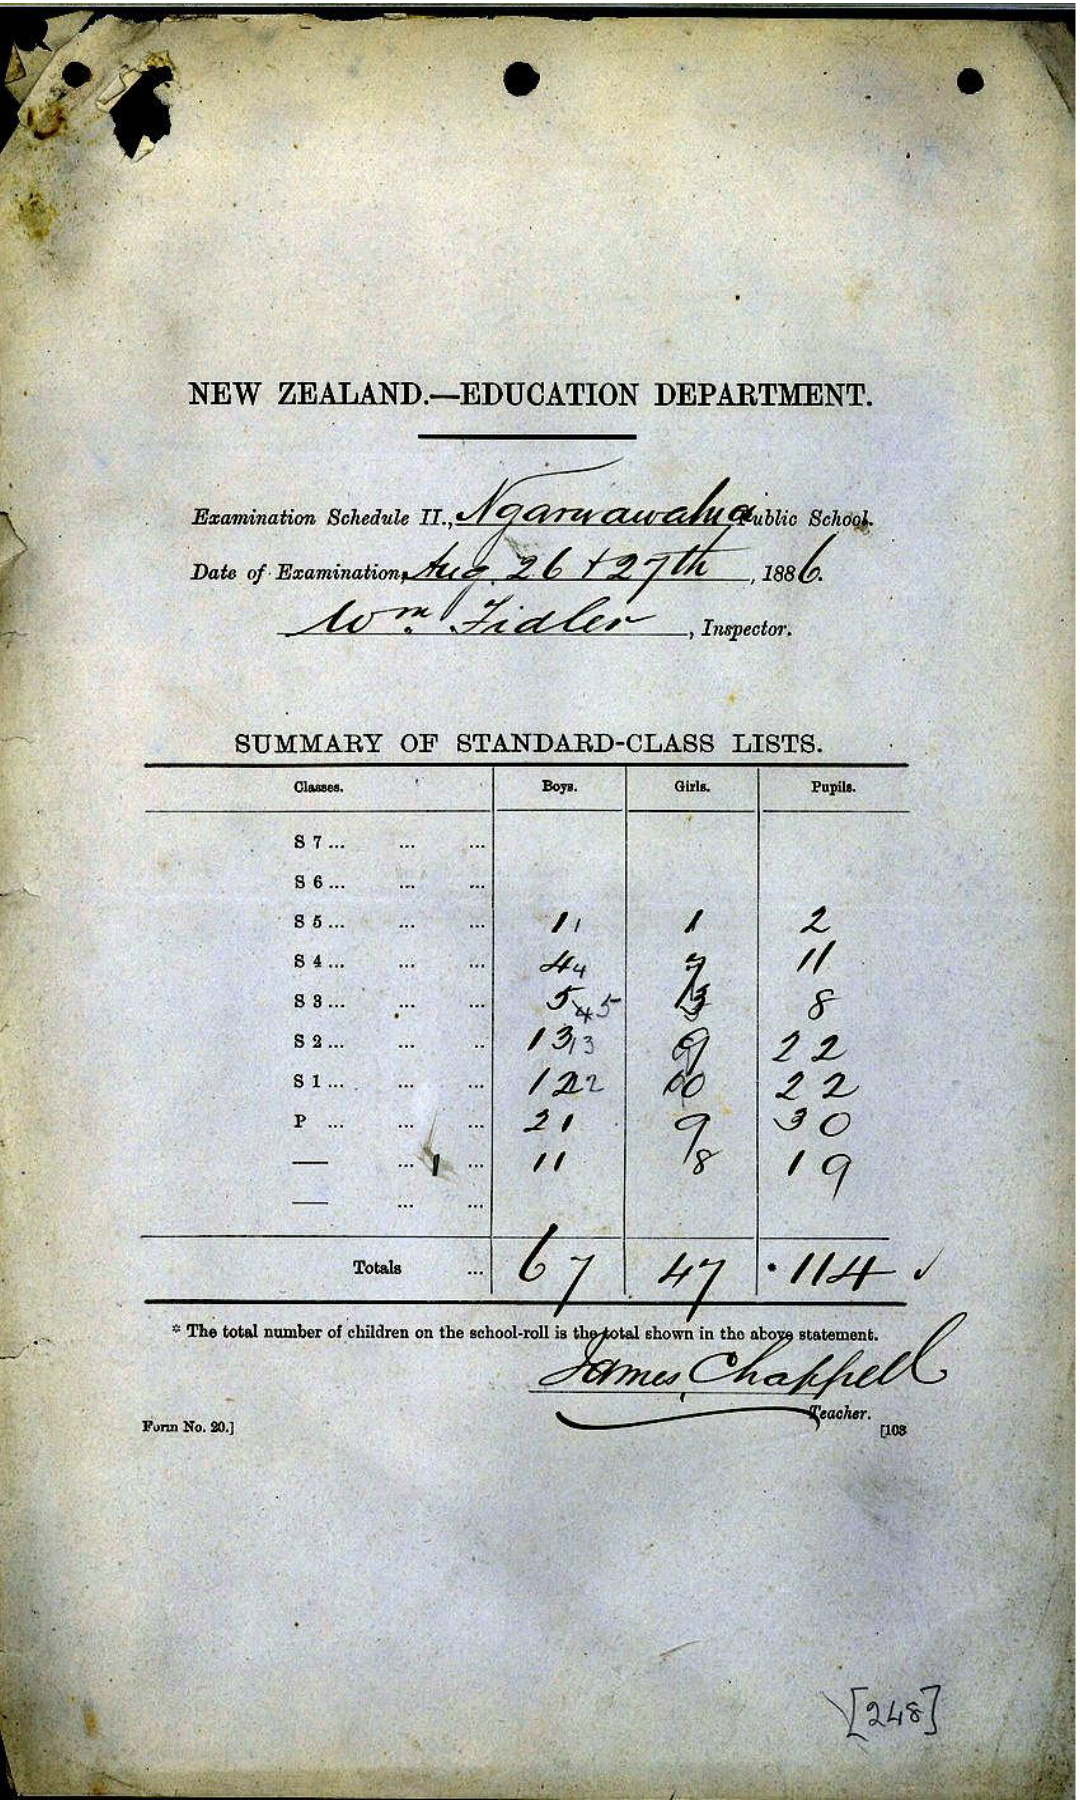 NEW ZEALAND.—EDUCATION DEPARTMENT.
Examination Schedule II., Ngaruawahia Public School.
Date of Examination, Aug. 26 + 27th, 1886.
Wm. Fidler, Inspector.
SUMMARY OF STANDARD-CLASS LISTS.
Classes. Boys. Girls. Pupils.
S 7 ... ... ...
S 6 ... ... ...
S 5 ... ... ... 1 1 1 2
S 4 ... ... ... 4 4 7 11
S 3 ... ... ... 5 4 5 3 8
S 2 ... ... .. 13 13 9 22
S 1 ... ... ... 12 12 10 22
P ... ... ... 21 9 30
— ... 1 ... 11 8 19
— ... ...
Totals ... 67 47 114 ✓
* The total number of children on the school-roll is the total shown in the above statement.
James Chappell
Teacher.
Form No. 20.] [103
[248]